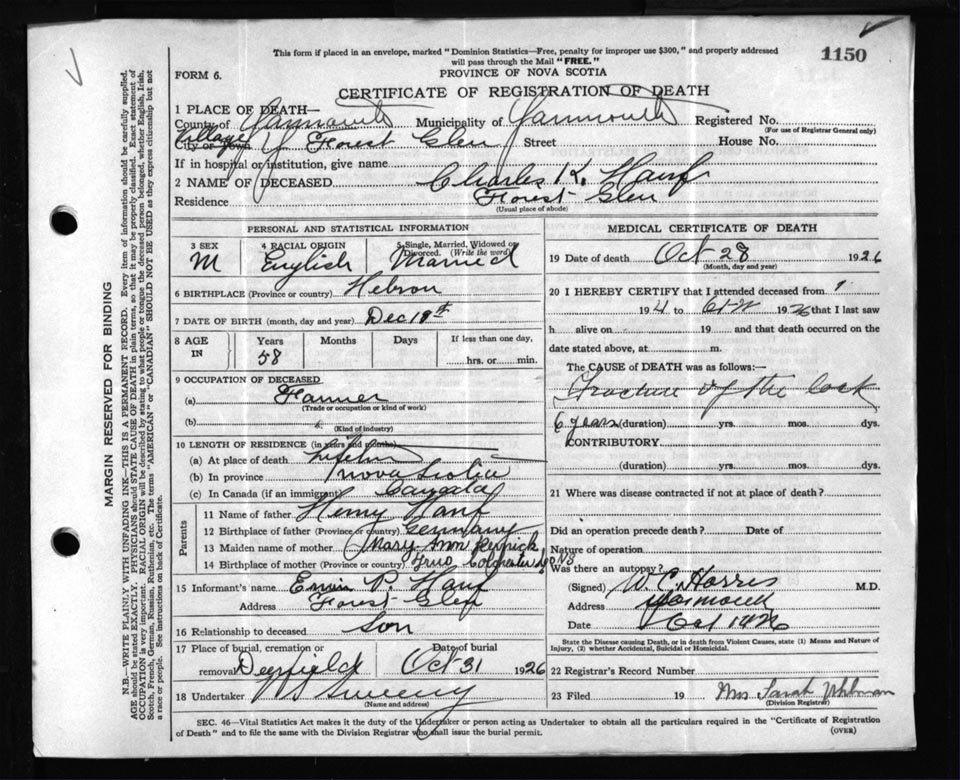 This form if placed in an envelope, marked "Dominion Statistics—Free, penalty for improper use $300," and properly addressed
will pass through the Mail "FREE."
1150
FORM 6.
PROVINCE OF NOVA SCOTIA
CERTIFICATE OF REGISTRATION OF DEATH
1 PLACE OF DEATH—
County of Yarmouth Municipality of Yarmouth Registered No.
(For use of Registrar General only)
Village of Forest Glen Street House No.
City or Town
If in hospital or institution, give name
2 NAME OF DECEASED Charles K. Hanf
Residence Forest Glen
(Usual place of abode)
PERSONAL AND STATISTICAL INFORMATION
3 SEX 4 RACIAL ORIGIN 5 Single, Married, Widowed or Divorced. (Write the word)
M English Married
6 BIRTHPLACE (Province or country) Hebron
7 DATE OF BIRTH (month, day and year) Dec 18th
8 AGE IN Years Months Days If less than one day,
58 hrs. or min.
9 OCCUPATION OF DECEASED
(a) Farmer
(Trade or occupation or kind of work)
(b)
(Kind of industry)
10 LENGTH OF RESIDENCE (in years and months)
(a) At place of death
(b) In province Nova Scotia
(c) In Canada (if an immigrant) Canada
Parents
11 Name of father Henry Hanf
12 Birthplace of father (Province or country) Germany
13 Maiden name of mother Mary Ann
14 Birthplace of mother (Province or country) Truro Colchester Co NS
15 Informant's name P. Hanf
Address Forest Glen
16 Relationship to deceased Son
17 Place of burial, cremation or removal Deerfield Date of burial Oct 31 1926
18 Undertaker Sweeny
(Name and address)
MEDICAL CERTIFICATE OF DEATH
19 Date of death Oct 28 1926
(Month, day and year)
20 I HEREBY CERTIFY that I attended deceased from
19 to 19 26 that I last saw
h alive on 19 and that death occurred on
date stated above, at m.
The CAUSE of DEATH was as follows:—
Fracture of the
6 years (duration) yrs. mos. dys.
CONTRIBUTORY
(duration) yrs. mos. dys.
21 Where was disease contracted if not at place of death?
Did an operation precede death? Date of
Nature of operation
Was there an autopsy?
(Signed) W. C. Harris M.D.
Address Yarmouth
Date
State the Disease causing Death, or in death from Violent Causes, state (1) Means and Nature of
Injury, (2) whether Accidental, Suicidal or Homicidal.
22 Registrar's Record Number
23 Filed 19 Mrs Sarah Uhlman
(Division Registrar)
SEC. 46—Vital Statistics Act makes it the duty of the Undertaker or person acting as Undertaker to obtain all the particulars required in the "Certificate of Registration
of Death" and to file the same with the Division Registrar who shall issue the burial permit.
(OVER)
MARGIN RESERVED FOR BINDING
N.B.—WRITE PLAINLY WITH UNFADING INK—THIS IS A PERMANENT RECORD. Every item of information should be carefully supplied.
AGE should be stated EXACTLY. PHYSICIANS should STATE CAUSE OF DEATH in plain terms, so that it may be properly classified. Exact statement of
OCCUPATION is very important. RACIAL ORIGIN will be described by stating to what people or tongue the deceased person belonged, whether English, Irish,
Scotch, French, German, Russian, Ruthenian, etc. The terms "AMERICAN" or "CANADIAN" SHOULD NOT BE USED as they express citizenship but not
a race or people. See instructions on back of Certificate.